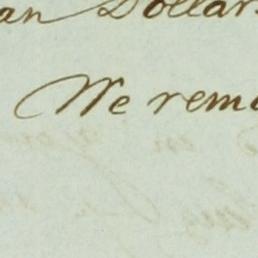 an Dollars
We rema